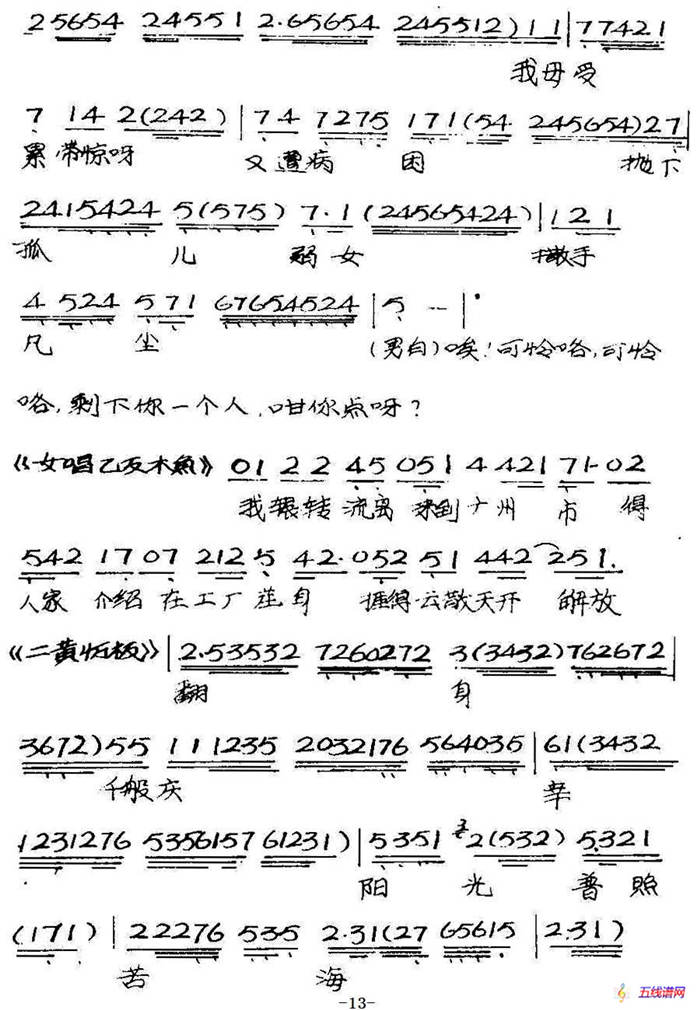 25654 24551 2·65654 245512) 1 1 | 77421
我母受
7 14 2(242) | 74 7275 171(54· 245654)27 |
累带惊呀 又遭病 困 抛下
2415424 5(575) 7·1 (24565424) | 121
孤 儿 弱女 撒手
4 524 571 67654524 | 5 -- | ·
凡 尘 (男白)唉！可怜咯，可怜
咯，剩下你一个人，咁你点呀？
《女唱乙反木鱼》 01 22 45 051 4 421 71· 02
我辗转 流离 来到广州 市 得
542 17 07 212 5 42· 052 51 442 251.
人家 介绍 在工厂 身 云散天开 解放
《二黄 板》 | 2·53532 7260272 3(3432) 762672 |
翻 身
3672) 55 111235 2032176 564035 | 61(3432
千般庆 幸
1231276 5356157 61231) | 5351 2(532) 5321
阳 光 普照
(171) | 22276 535 2·31(27 65615 | 2·31)
苦 海
-13-
五线谱网